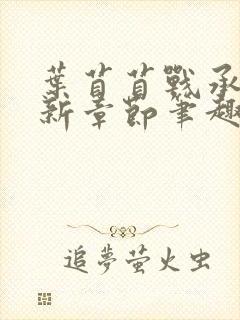 葉苜苜戰承
新章節筆趣
追夢螢火虫